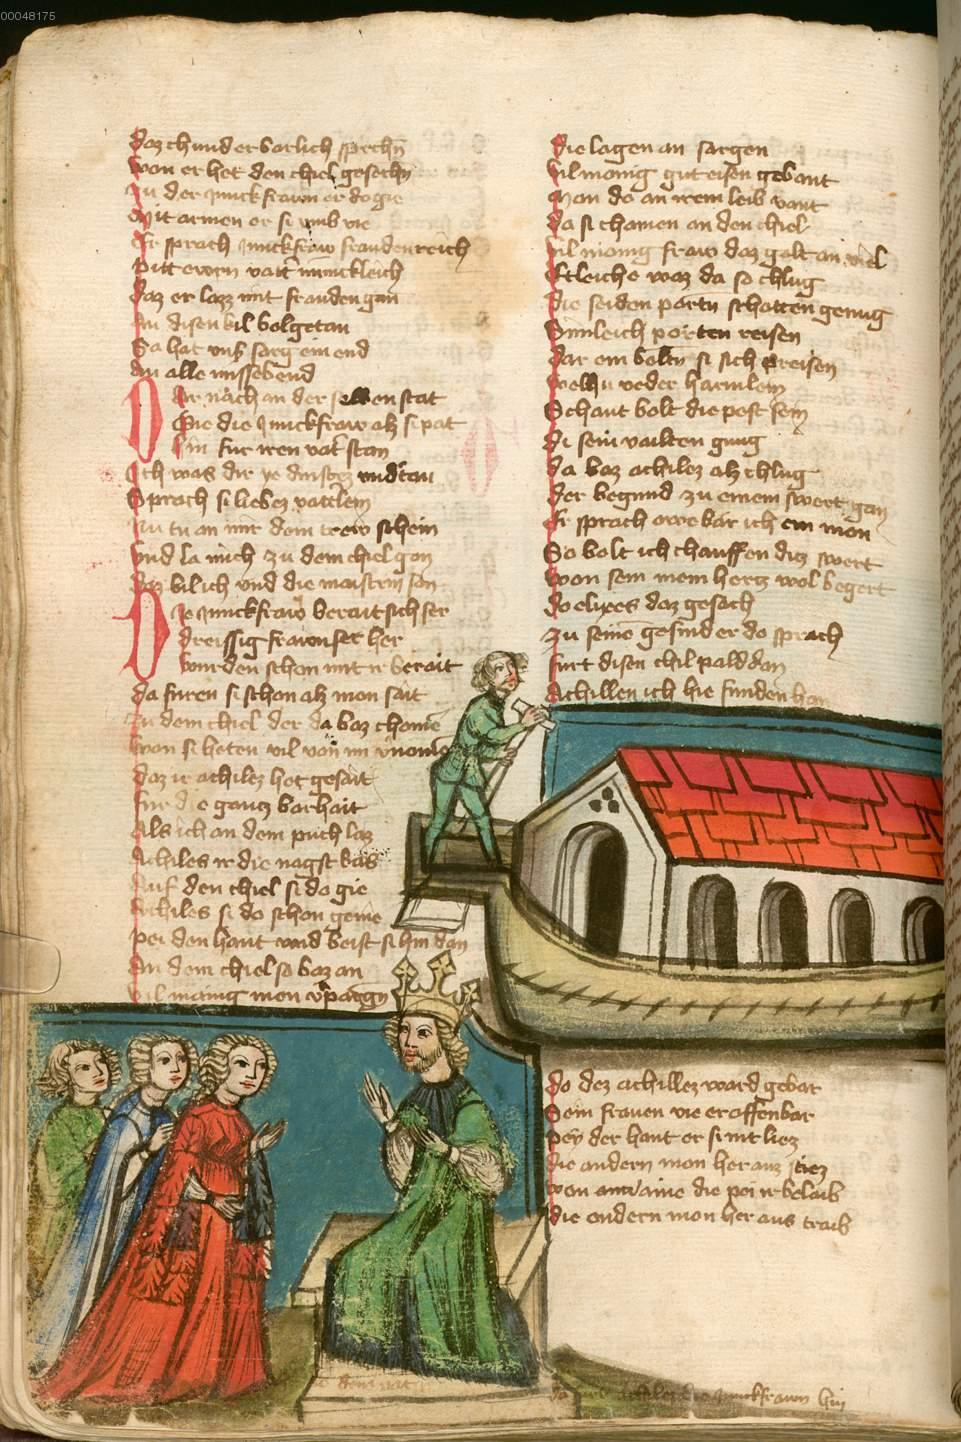 00048175
daz chund er vorlich sprechn
won er het den chiel gesechn
zu der junckfrawn er do gie
Mit armen er si umb vie
Er sprach junckfraw fraudenreich
Pitt ewrn vatt' innickleich
daz er lazz mit frauden gan
An disen kil volgetan
So hat uns sarg ein end
An alle missebend
Dar nach an der selben stat
Gie die junckfraw alz si pat
Hin fur iren vat' stan
Ich was dir ye dinstez undtan
Sprach si liebez vatt'lein
Nu tu an mir dein trew schein
Und la mich zu dem chiel gan
daz bil ich und die maistrin han
Die junckfraw berait sich ser
dreissig frawen ser her
wurden schon mit ir berait
da furen si schon alz mon sait
zu dem chiel der da waz chome
won si heten vil von im v'nome
daz ir achilez het gesait
fur die gancz barhait
Als ich an dem puch laz
Achiles ir die nagst bas
Auf den chiel si do gie
Achiles si do schon geine
Pei den hant und beist si hin dan
An dem chiel so baz an
vil manig mon v'pargn
die lagen an sargen
vil manig gut eisen gebant
Man do an irem leib vant
da si chamen an den chiel
vil manig fraw daz golt an viel
Etleiche waz da so chlug
die seiden partn schatten genug
Simleich porten reisen
dar ein boltn si sich preisen
vechu veder harmlein
Schaut bolt die pest sein
di sein vailten gnug
da baz achilez alz chlug
der begund zu einem swert gan
Er sprach owe bar ich ein man
So bolt ich chauffen diz swert
Won sein mein hertz wol begert
do elixes daz gesach
zu seine gesind er do sprach
furt disen chil pald dan
Achillen ich hie funden han
do dez achillez ward gebar
Sein frauen vie er offenbar
Pey der hant er si nit liez
die andern mon her auz stiez
won die pei ir belaib
die andern mon her aus traib
junckfrawn hin